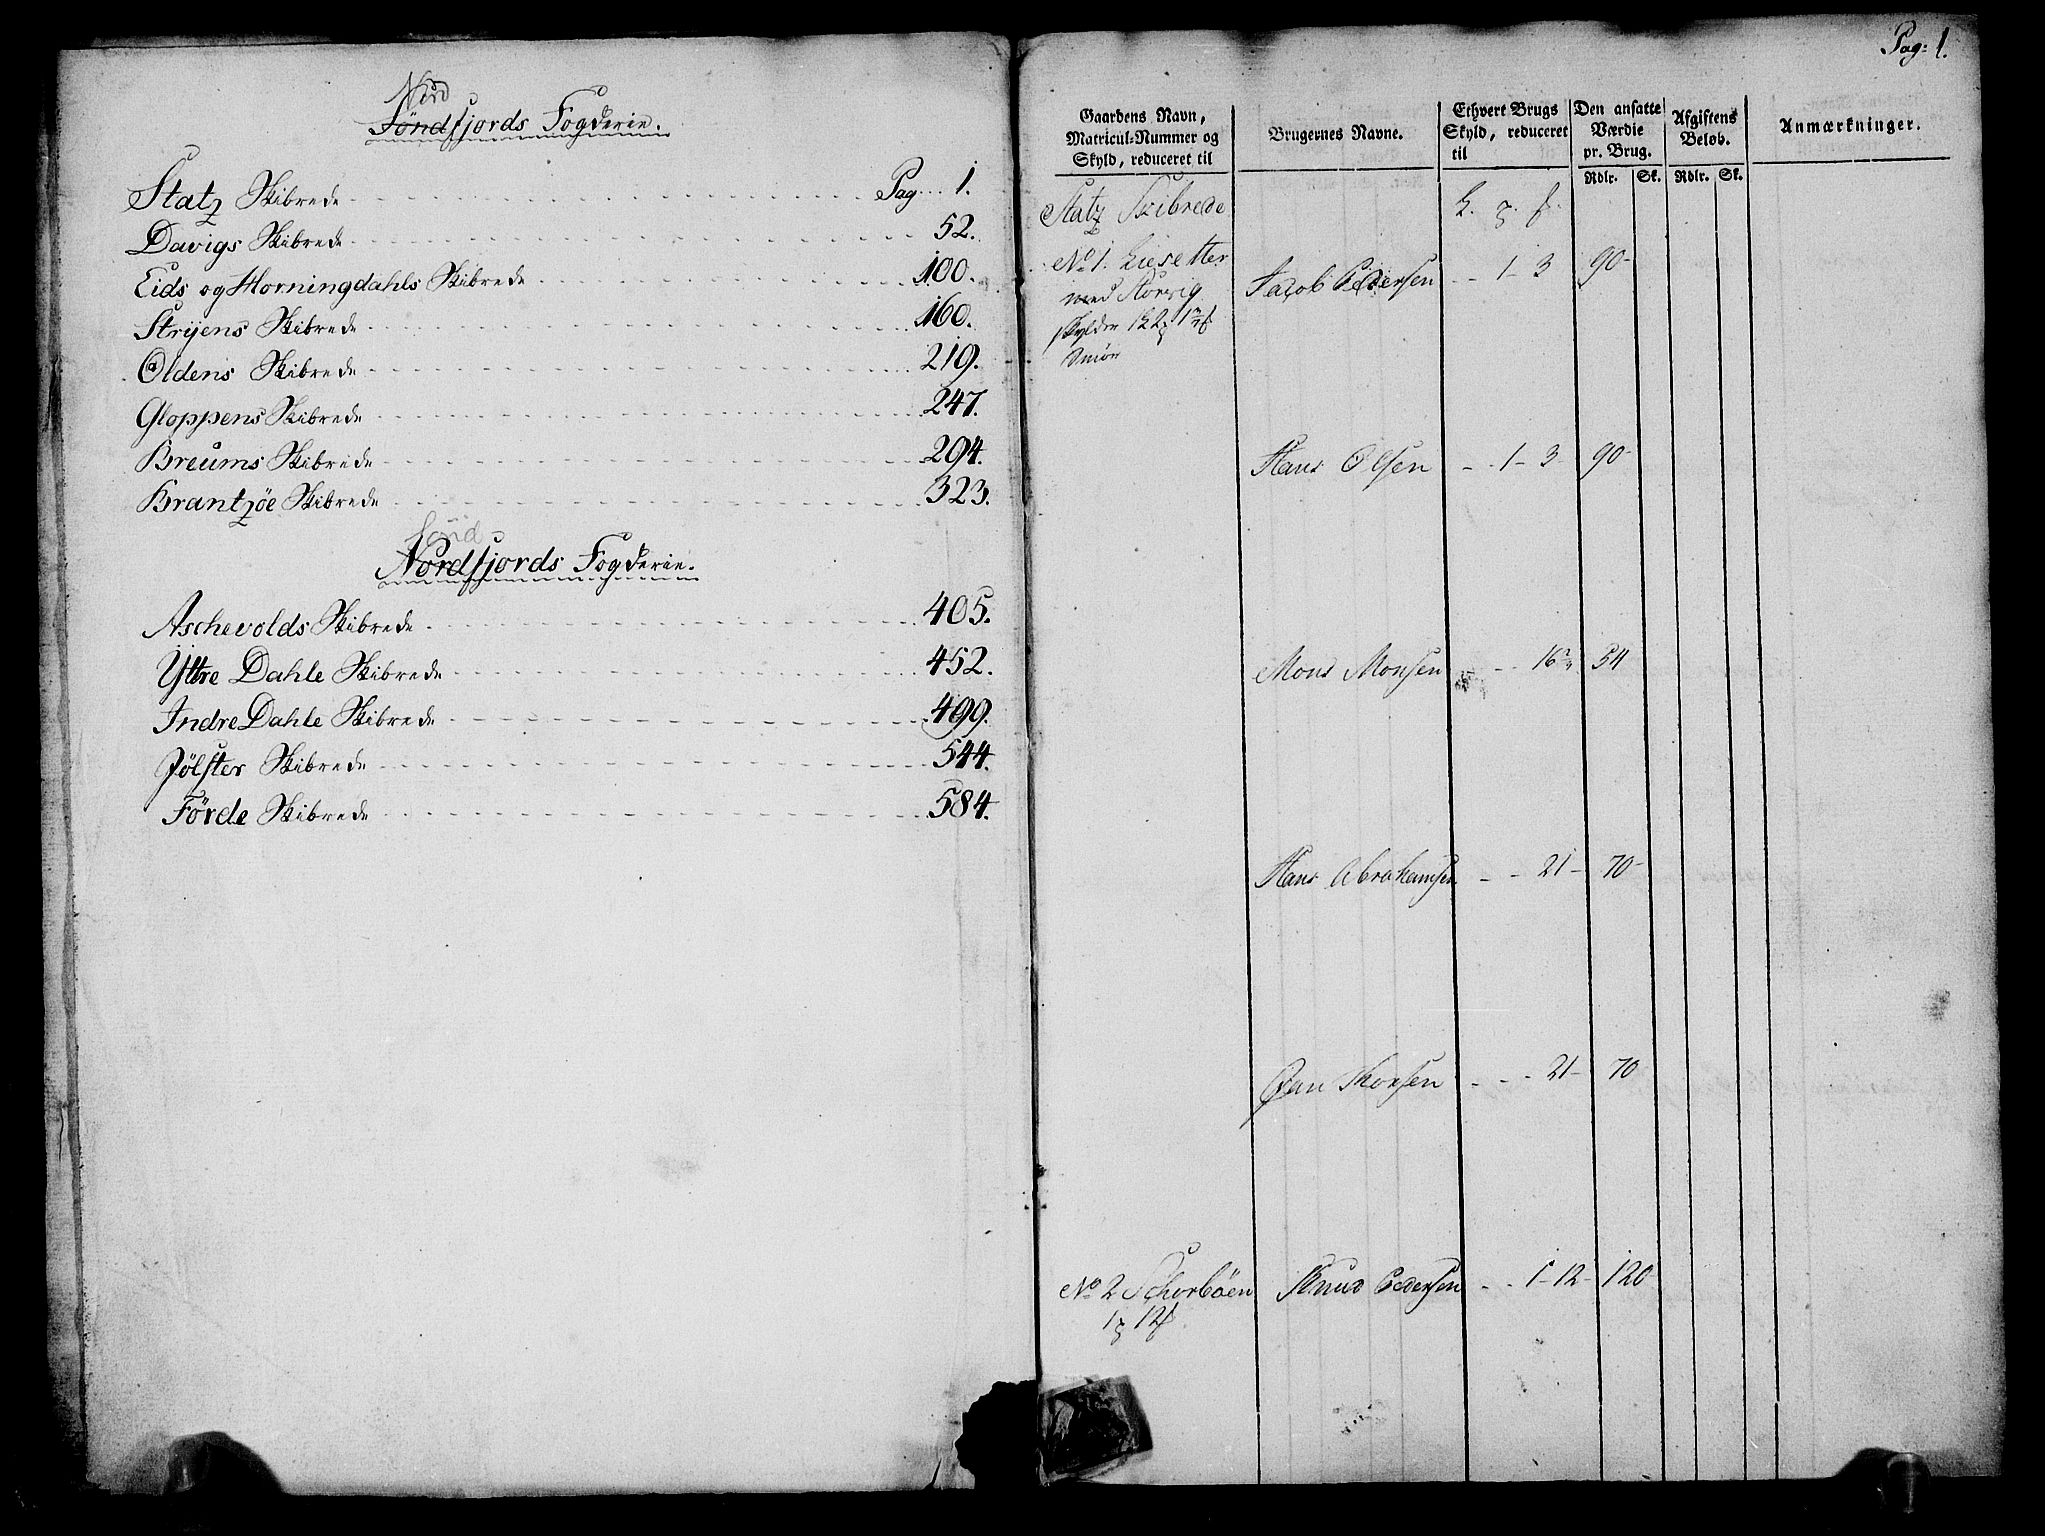 Nord
Söndfjords Fogderie.
Statz Skibrede Pag 1.
Davigs Skibrede 52.
Eids og Horningdahls Skibrede 100.
Strÿens Skibrede 160.
Oldens Skibrede 219.
Gloppens Skibrede 247.
Breums Skibrede 294.
Brantzöe Skibrede 323.
Sönd
Nordfjords Fogderie.
Aschevolds Skibrede 405.
Yttre Dahle Skibrede 452.
Indre Dahle Skibrede 499.
Jölster Skibrede 544.
Förde Skibrede 584.
Pag: 1.
Gaardens Navn, Matricul-Nummer og Skyld, reduceret til
Brugernes Navne.
Ethvert Brugs Skyld, reduceret til
Den ansatte Værdie pr. Brug.
Afgiftens Beløb.
Anmærkninger.
Rdlr. Sk. Rdlr. Sk.
Statz Skibrede
No 1. Liesetter Jacob Pedersen - - 1 - 3 90 -
med Storvig
skylder
Smör
Hans Olsen - - 1 - 3 90 -
Mons Monsen - - 16 54
Hans Abrahamsen - - 21 - 70 -
- - - 21 - 70
No 2 Schorböen Knud Pedersen - - 1 - 12 - 120